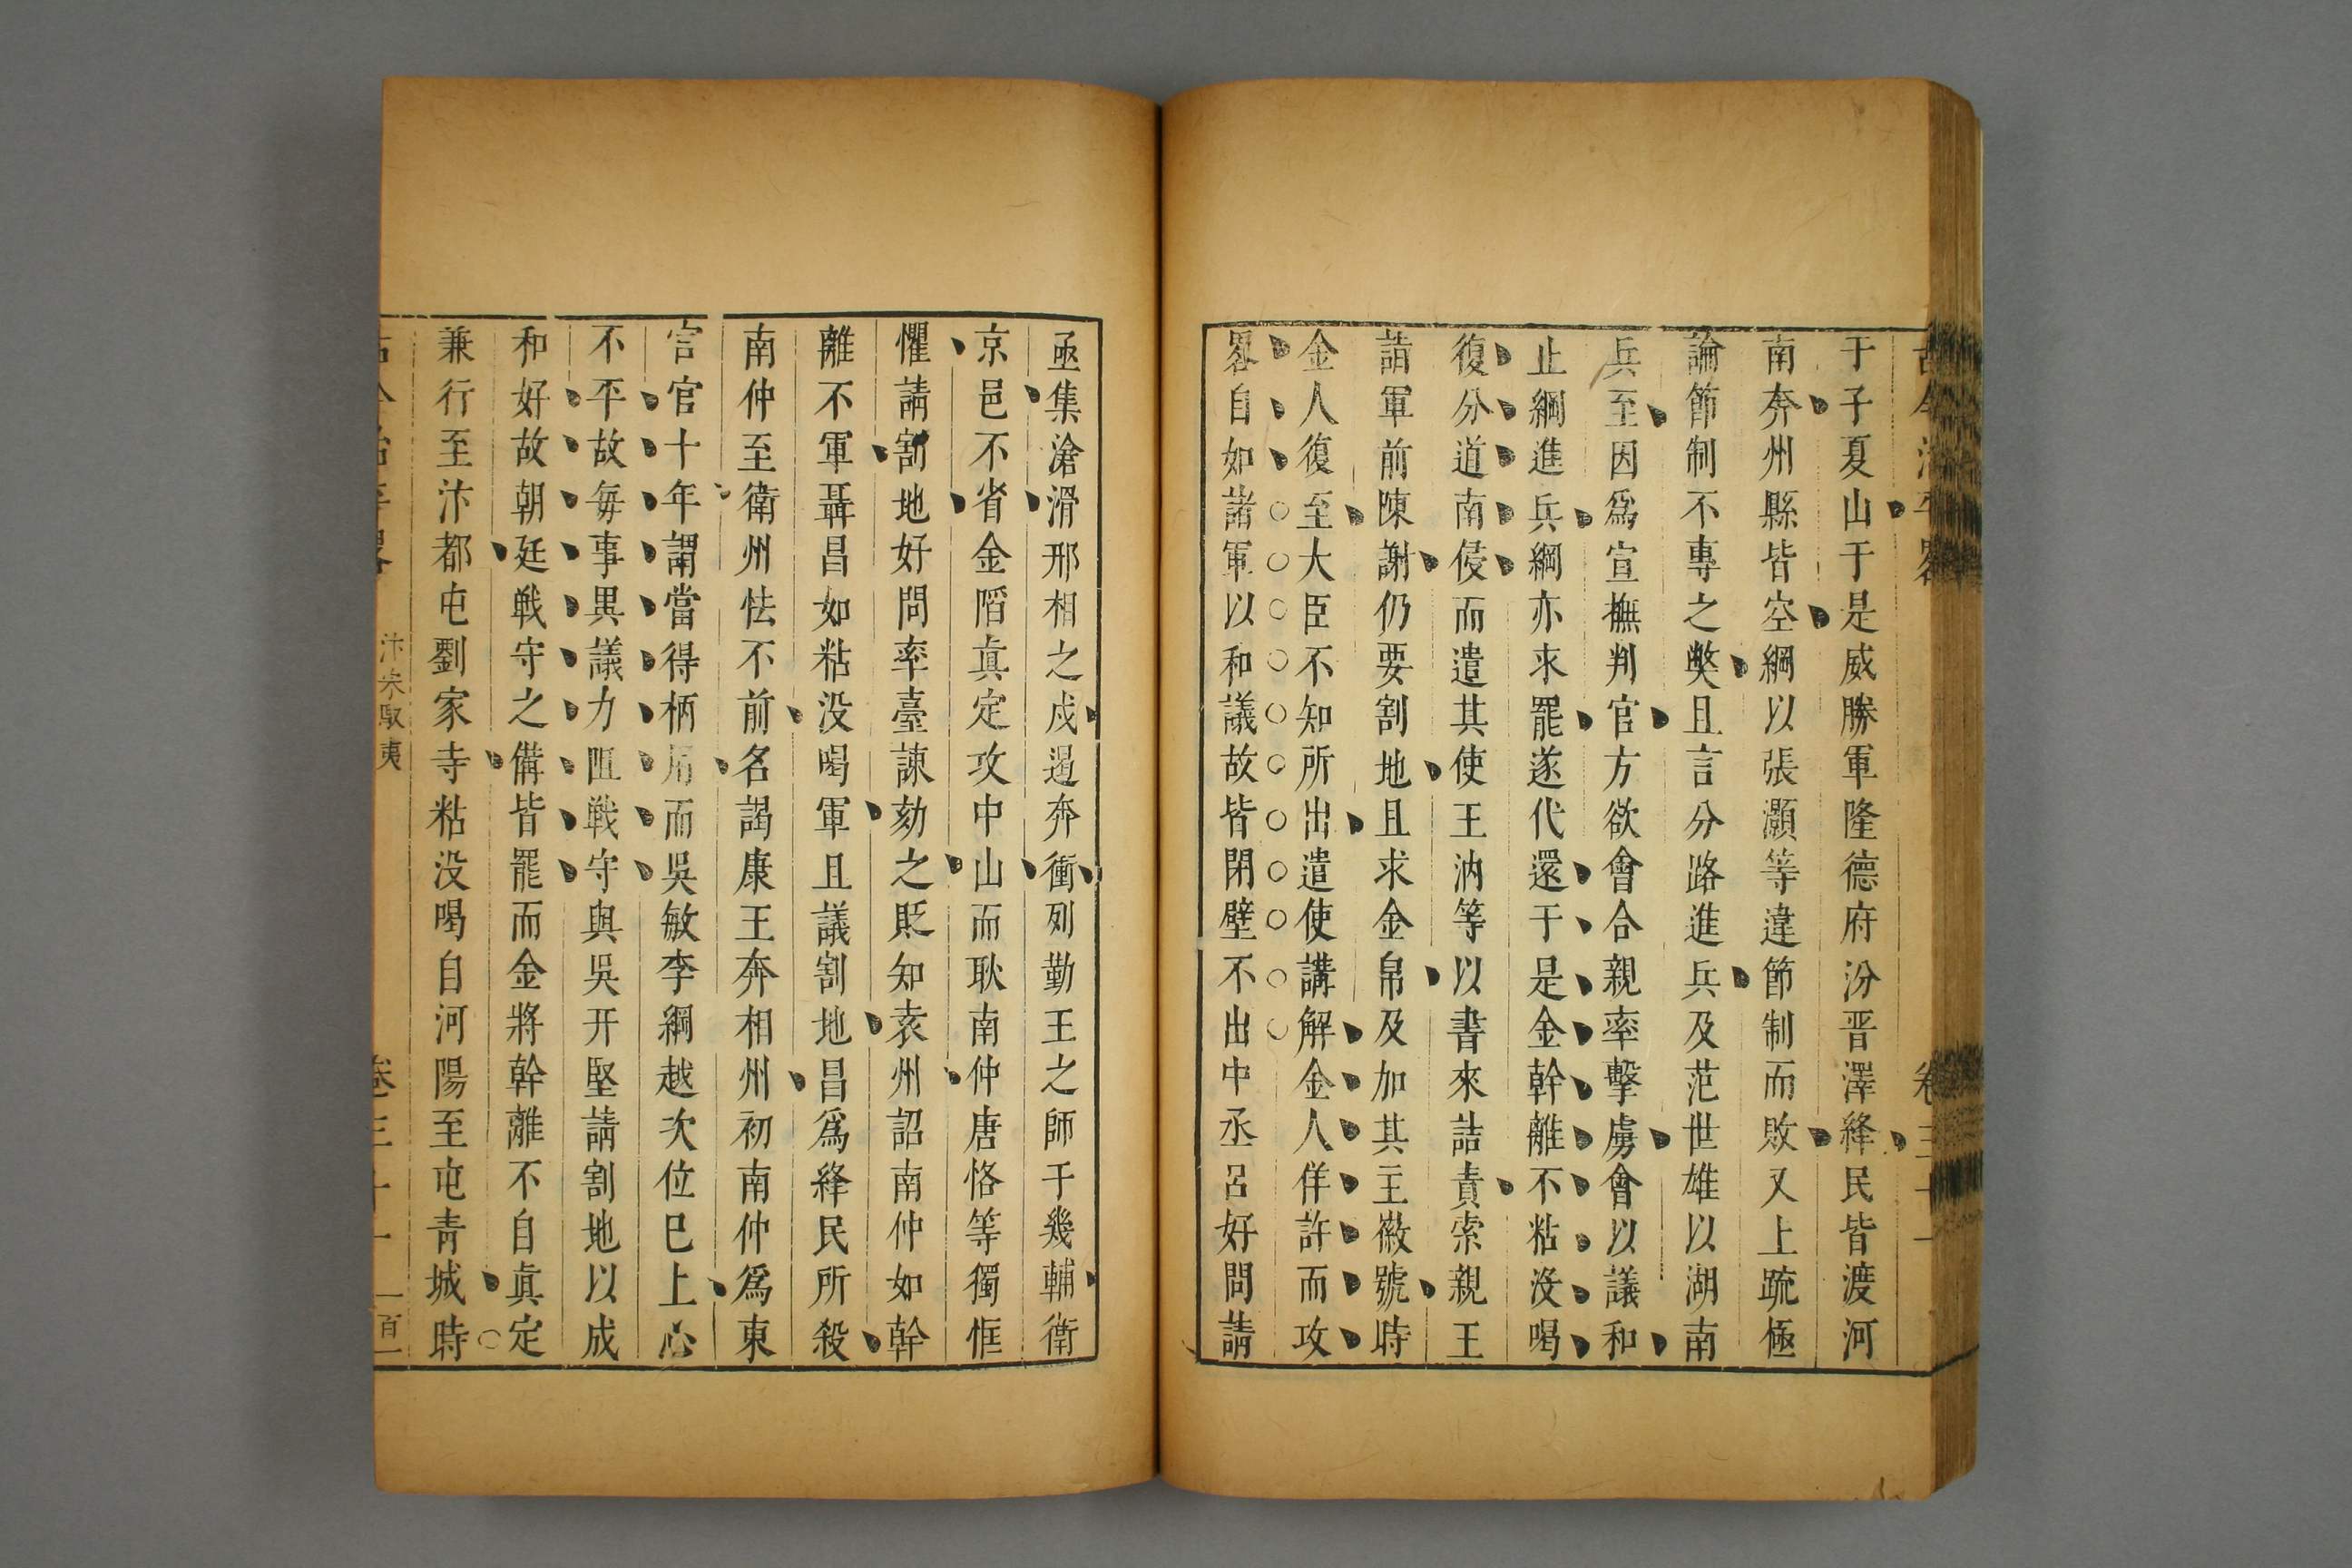 于子夏山于是威勝軍隆德府汾晋澤絳民皆渡河
南奔州縣皆空綱以張灝等違節制而敗又上疏極
論節制不專之弊且言分路進兵及范世雄以湖南
兵至因爲宣撫判官方欲會合親率擊虜會以議和
止綱進兵綱亦求罷遂代還于是金幹離不粘没喝
復分道南侵而遣其使王汭等以書來詰責索親王
詣軍前陳謝仍要割地且求金帛及加其主徽號時
金人復至大臣不知所出遣使講解金人佯許而攻
畧自如諸軍以和議故皆閉壁不出中丞呂好問請
亟集滄滑邢相之戍遏奔衝列勤王之師于幾輔衛
京邑不省金陷眞定攻中山而耿南仲唐恪等獨恇
懼請割地好問率臺諫劾之貶知袁州詔南仲如幹
離不軍聶昌如粘没喝軍且議割地昌爲絳民所殺
南仲至衛州怯不前名謁康王奔相州初南仲爲東
宮官十年謂當得柄用而吳敏李綱越次位巳上心
不平故每事異議力阻戰守與吳开堅請割地以成
和好故朝廷戰守之備皆罷而金將幹離不自眞定
兼行至汴都屯劉家寺粘没喝自河陽至屯青城時
汴宋馭夷
卷三十一
一百一